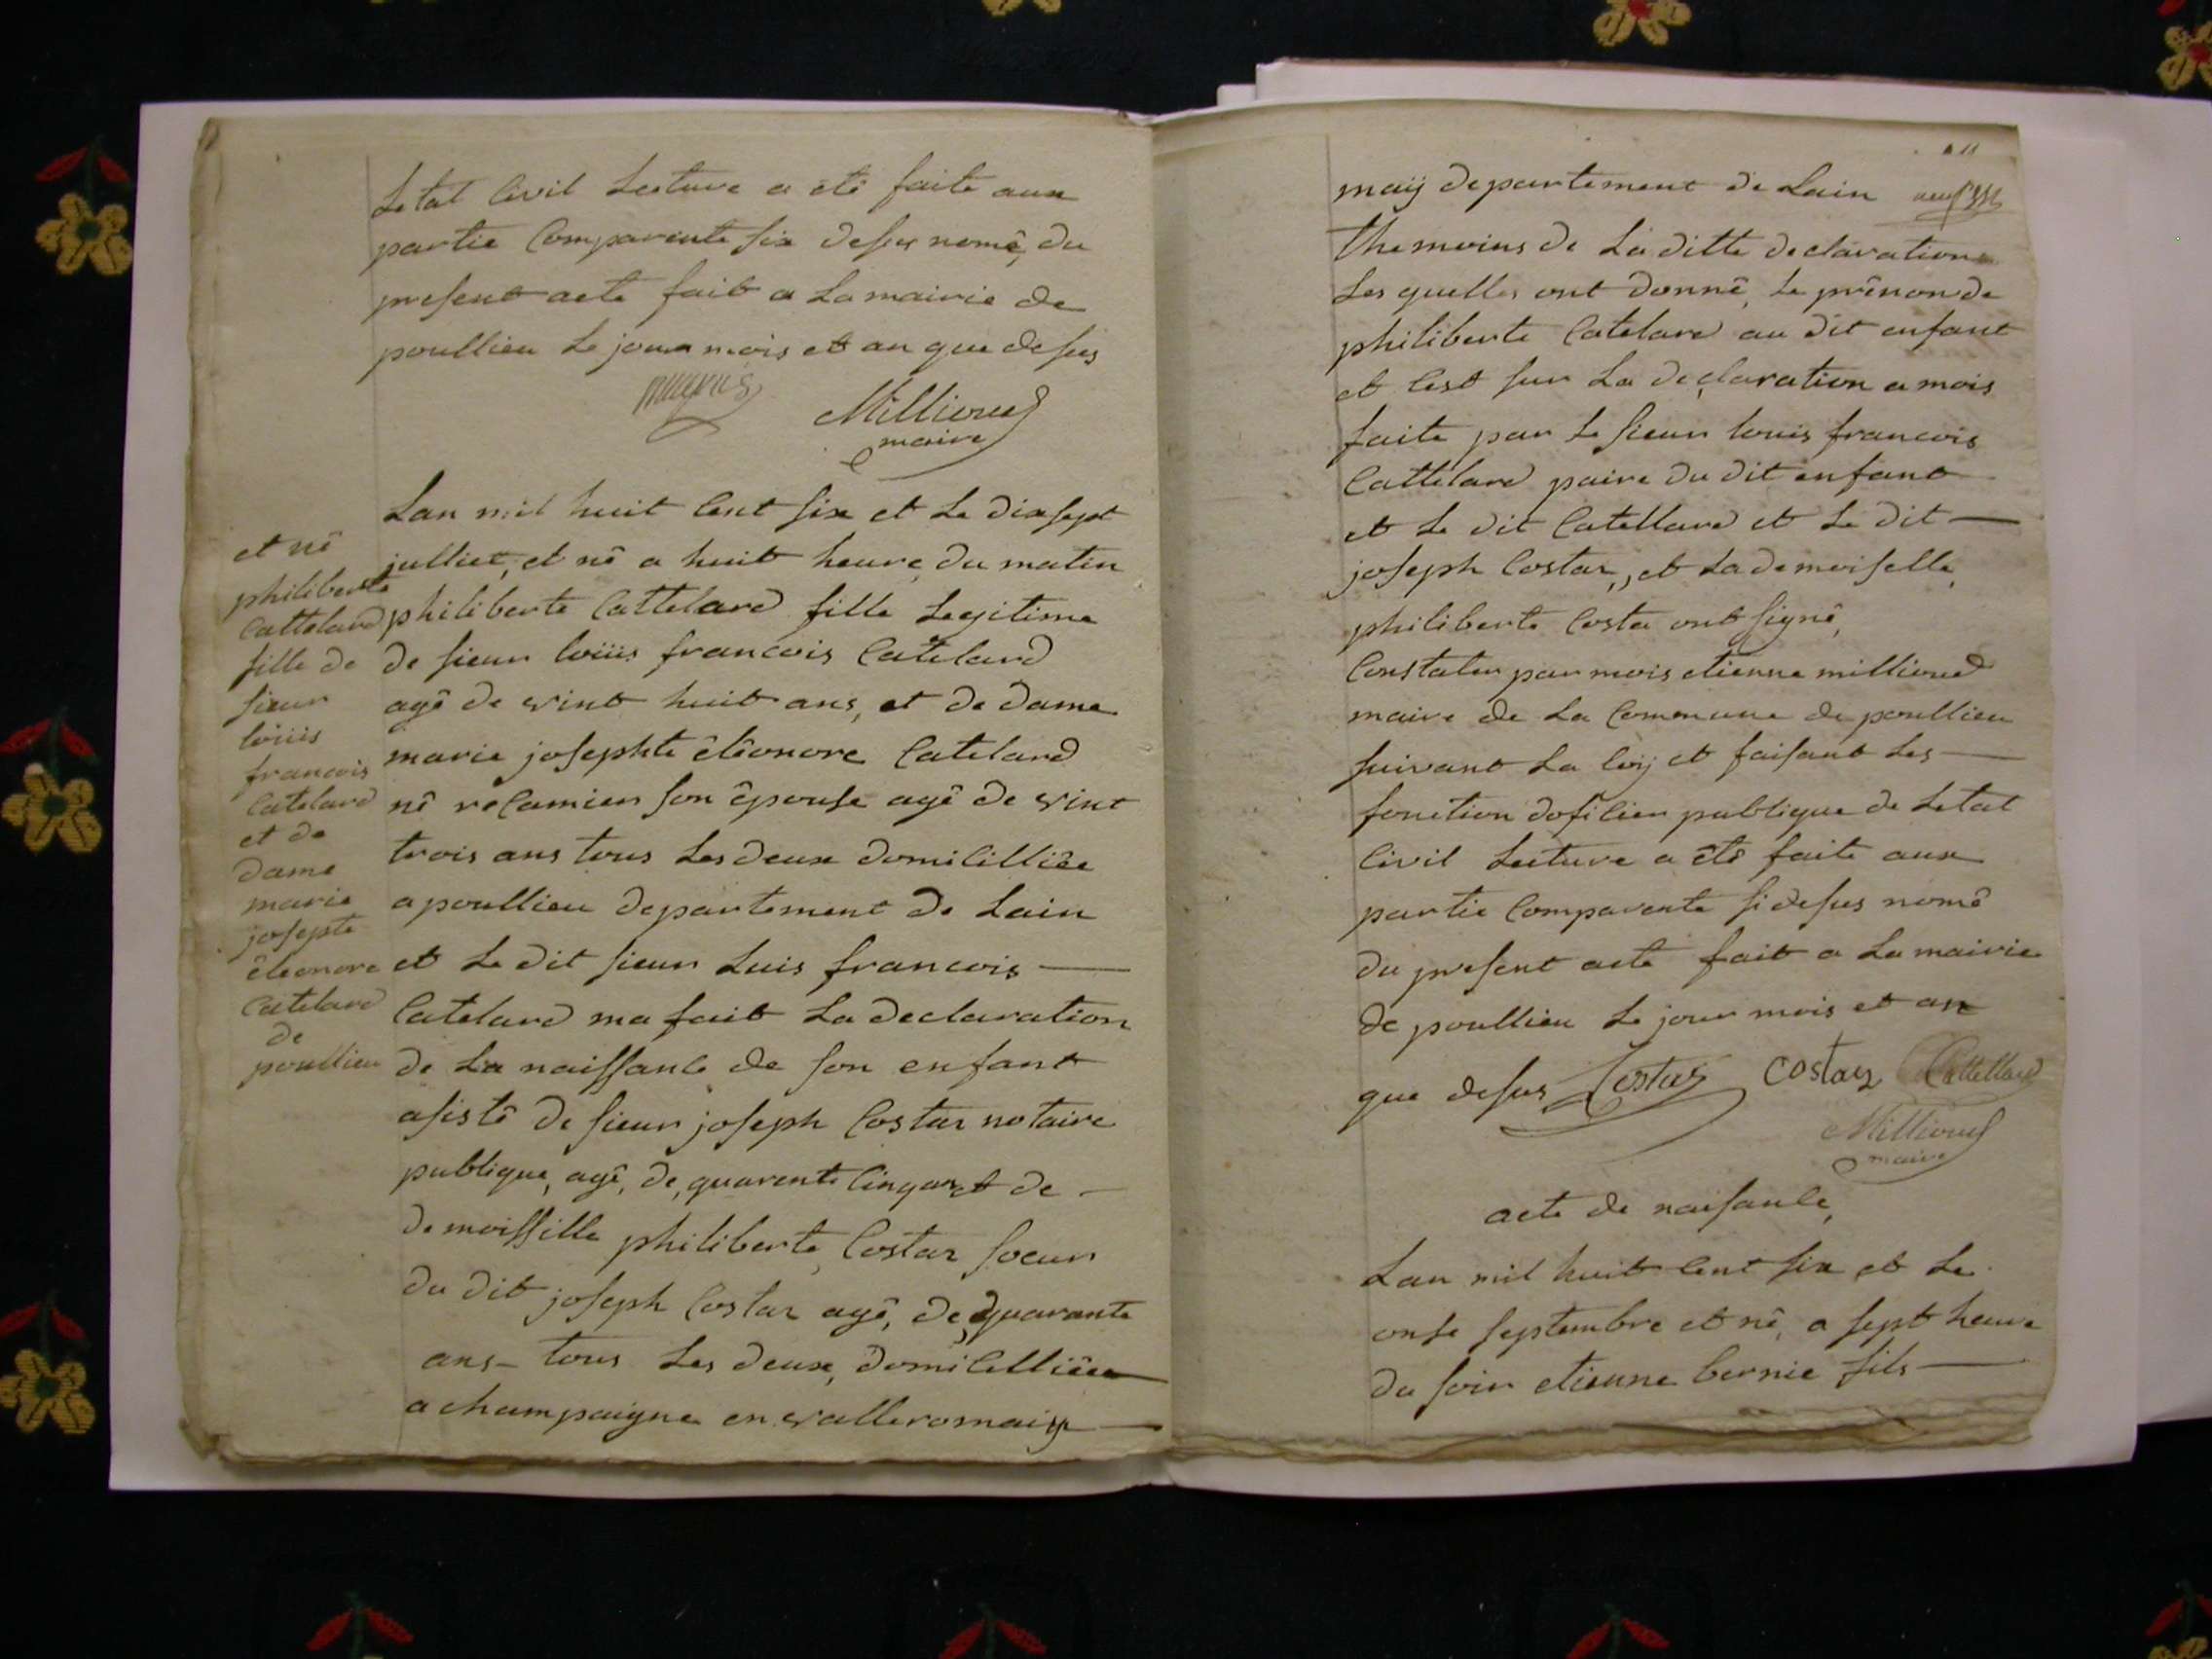 Letat Civil Lecture a eté faite aux
partie Comparente six desus nomê, du
present acte fait a La mairie de
poullieu Le jour mois et an que desus
Millioud
maire
et nê
philiberte
Cattelard
fille de
sieur
loüis
francois
Catelard
et de
dame
marie
josepte
êleonore
Catelard
de
poullieu
Lan mil huit Cent six et Le dixsept
julliet, et nê a huit heure, du matin
philiberte Cattelard fille Legitime
de sieur loüis francois Catelard
agê de vint huit ans, et de dame
marie josephte êlêonore Catelard
nê reCamier son êpouse agê de vint
trois ans tous Les deux domiCilliêe
a poullieu departement de Lain
et Le dit sieur Luis francois —
Catelard ma fait La declaration
de La naissanCe de son enfant
asistê de sieur joseph Costaz notaire
publique, agê, de, quarente Cinq ans et de —
demoissille philiberte, Costaz soeur
du dit joseph Costaz agê, de, quarante
ans — tous Les deux, domiCilliêe
a champaigne en valleromaiy —
maiy departement de Lain
themoins de La ditte declaration
Les quelles ont donnê, Le prênon de
philiberte Catelard au dit enfant
et Cest sur La declaration a mois
faite par Le sieur louis francois
Cattelard paire du dit enfant
et Le dit Catellard et Le dit —
joseph Costaz, et La demoiselle,
philiberte Costa ont signê,
Constater par mois etienne millioud
maire de La Commune de poullieu
suivant La loy et faisant Les —
fonction dofiCier publique de Letat
Civil Lecture a êtê faite aux
partie Comparente si desus nomê
du present acte fait a La mairie
de poullieu Le jour mois et an
que desus Costaz Costaz Cattellard
Millioud
maire
acte de naisanCe,
Lan mil huit Cent six et Le
onse septembre et nê, a sept heure
du soir etienne bernie fils —